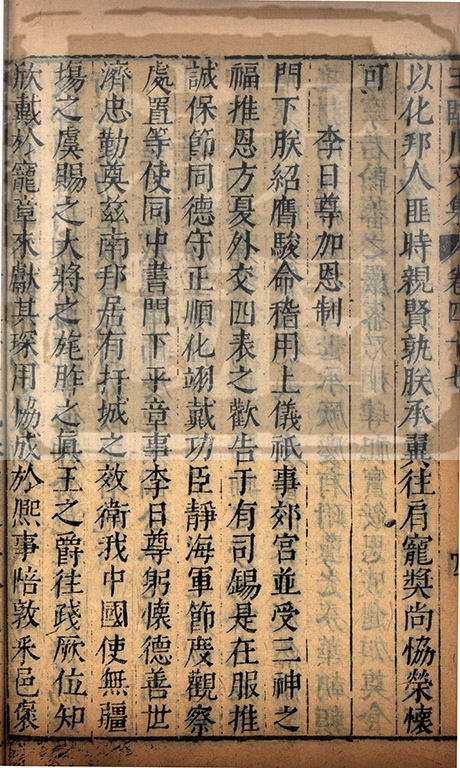 以化邦人匪時親賢孰朕承翼往肩寵獎尚恊榮懷
可
李日尊加恩制
門下朕紹膺駿命稽用上儀祇事郊宮並受三神之
福推恩方夏外交四表之歡告于有司錫是在服推
誠保節同德守正順化翊戴功臣靜海軍節度觀察
處置等使同中書門下平章事李日尊躬懷德善世
濟忠勤奠兹南邦居有扞城之效衛我中國使無疆
埸之虞賜之大將之旄胙之真王之爵往踐厥位知
欣戴於寵章來獻其琛用恊成於熈事陪敦釆邑褒